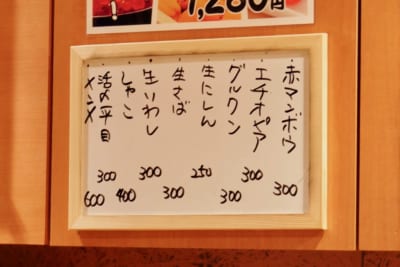 1,280円
・赤マンボウ 300
・エチオピア 300
・グルクン 300
・生にしん 250
・生さば 300
・生いわし 300
・しゃこ 400
・活〆平目 600